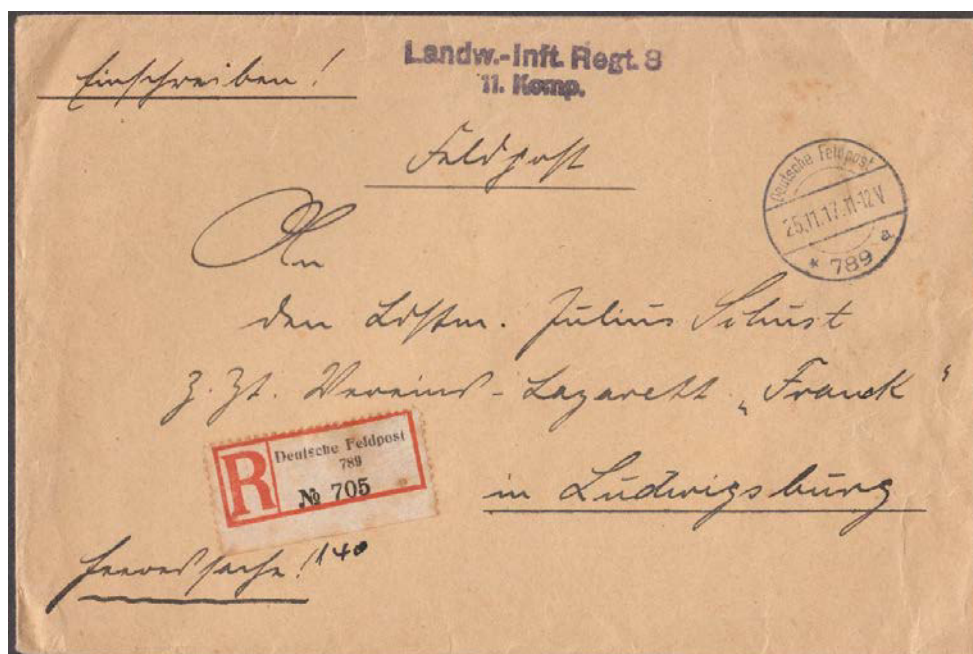 Einschreiben!
Landw.-Inft. Regt. 8
11. Komp.
Feldpost
Deutsche Feldpost
25.11.17.11-12V
* 789 a
An
den Ldstm. Julius Schust
z. Zt. Vereins-Lazarett „Franck“
Deutsche Feldpost
789
R
№ 705
in Ludwigsburg
Heeressache!
140